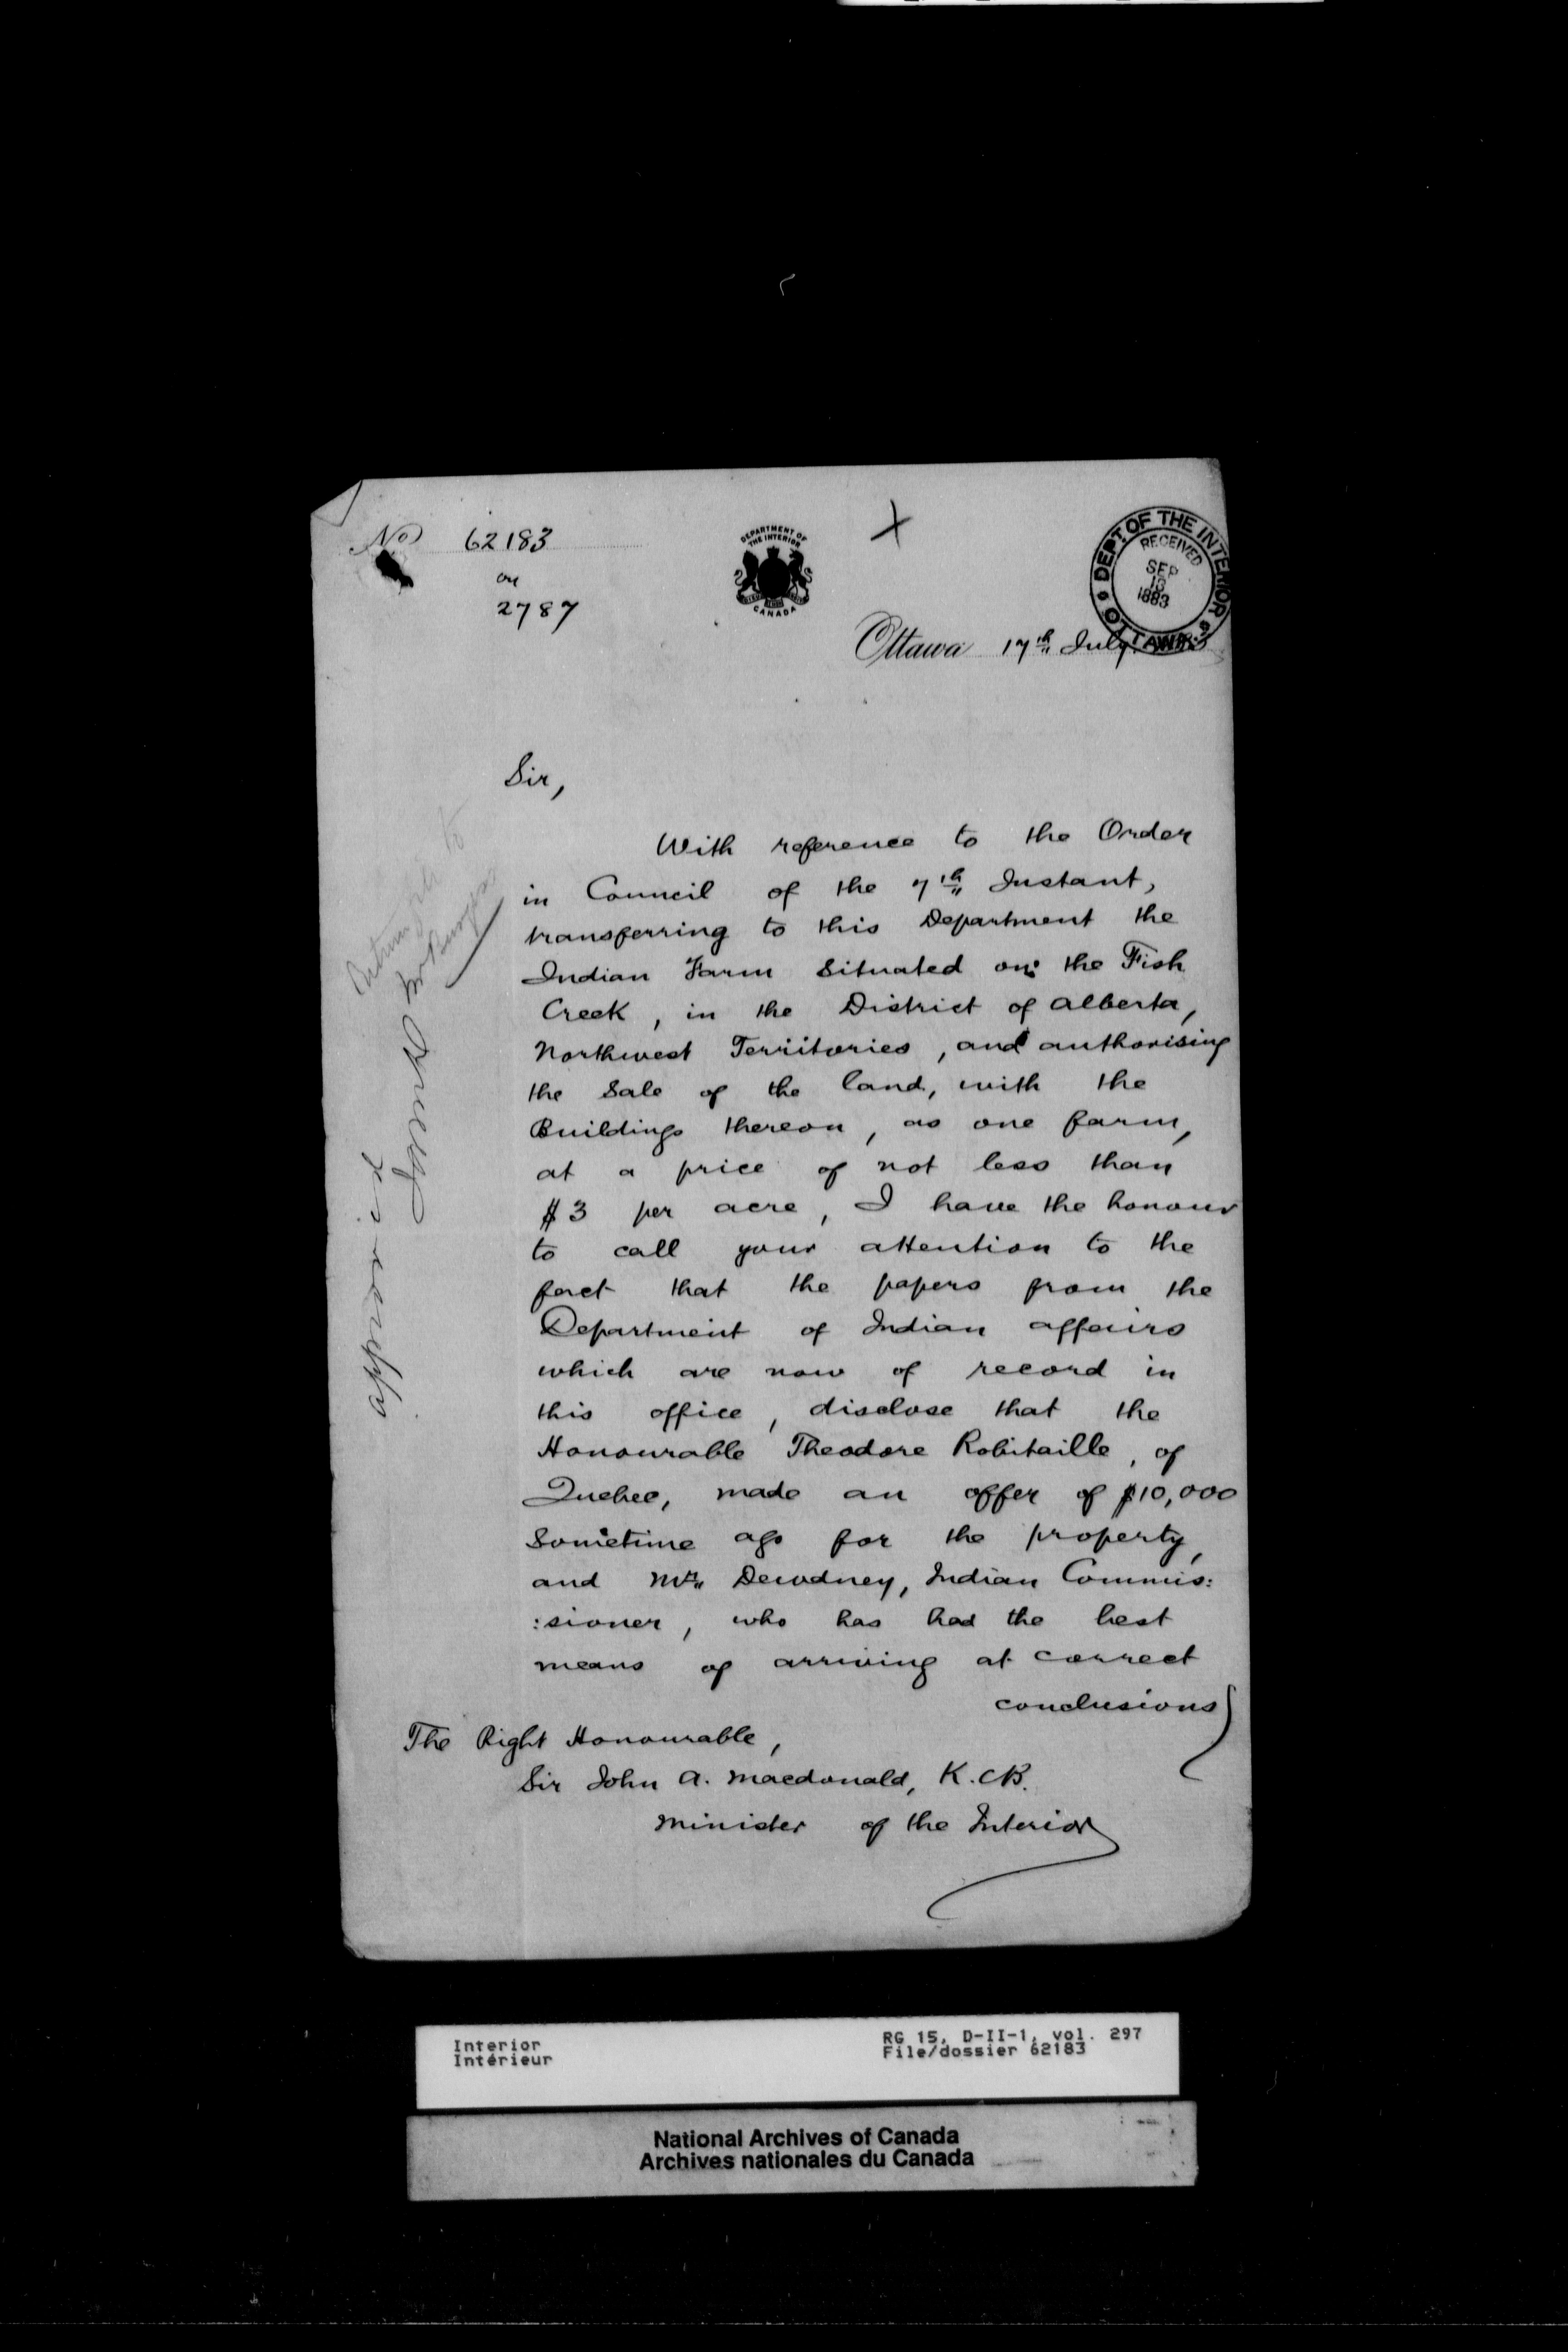 No 62183
on
2787
DEPARTMENT OF
THE INTERIOR
CANADA
DEPT. OF THE INTERIOR
RECEIVED
SEP
13
1883
OTTAWA
Ottawa 17th July
Sir,
With reference to the Order
in Council of the 7th Instant,
transferring to this Department the
Indian Farm Situated on the Fish
Creek, in the District of Alberta,
Northwest Territories, and authorising
the Sale of the land, with the
Buildings thereon, as one farm,
at a price of not less than
$3 per acre, I have the honour
to call your attention to the
fact that the papers from the
Department of Indian affairs
which are now of record in
this office, disclose that the
Honourable Theodore Robitaille, of
Quebec, made an offer of $10,000
Sometime ago for the property,
and Mr. Dewdney, Indian Commis:
:sioner, who has had the best
means of arriving at correct
conclusions
The Right Honourable,
Sir John A. Macdonald, K.C.B.
Minister of the Interior
Return to
Mr Burgess
approved
Interior
Intérieur
RG 15, D-II-1, vol. 297
File/dossier 62183
National Archives of Canada
Archives nationales du Canada